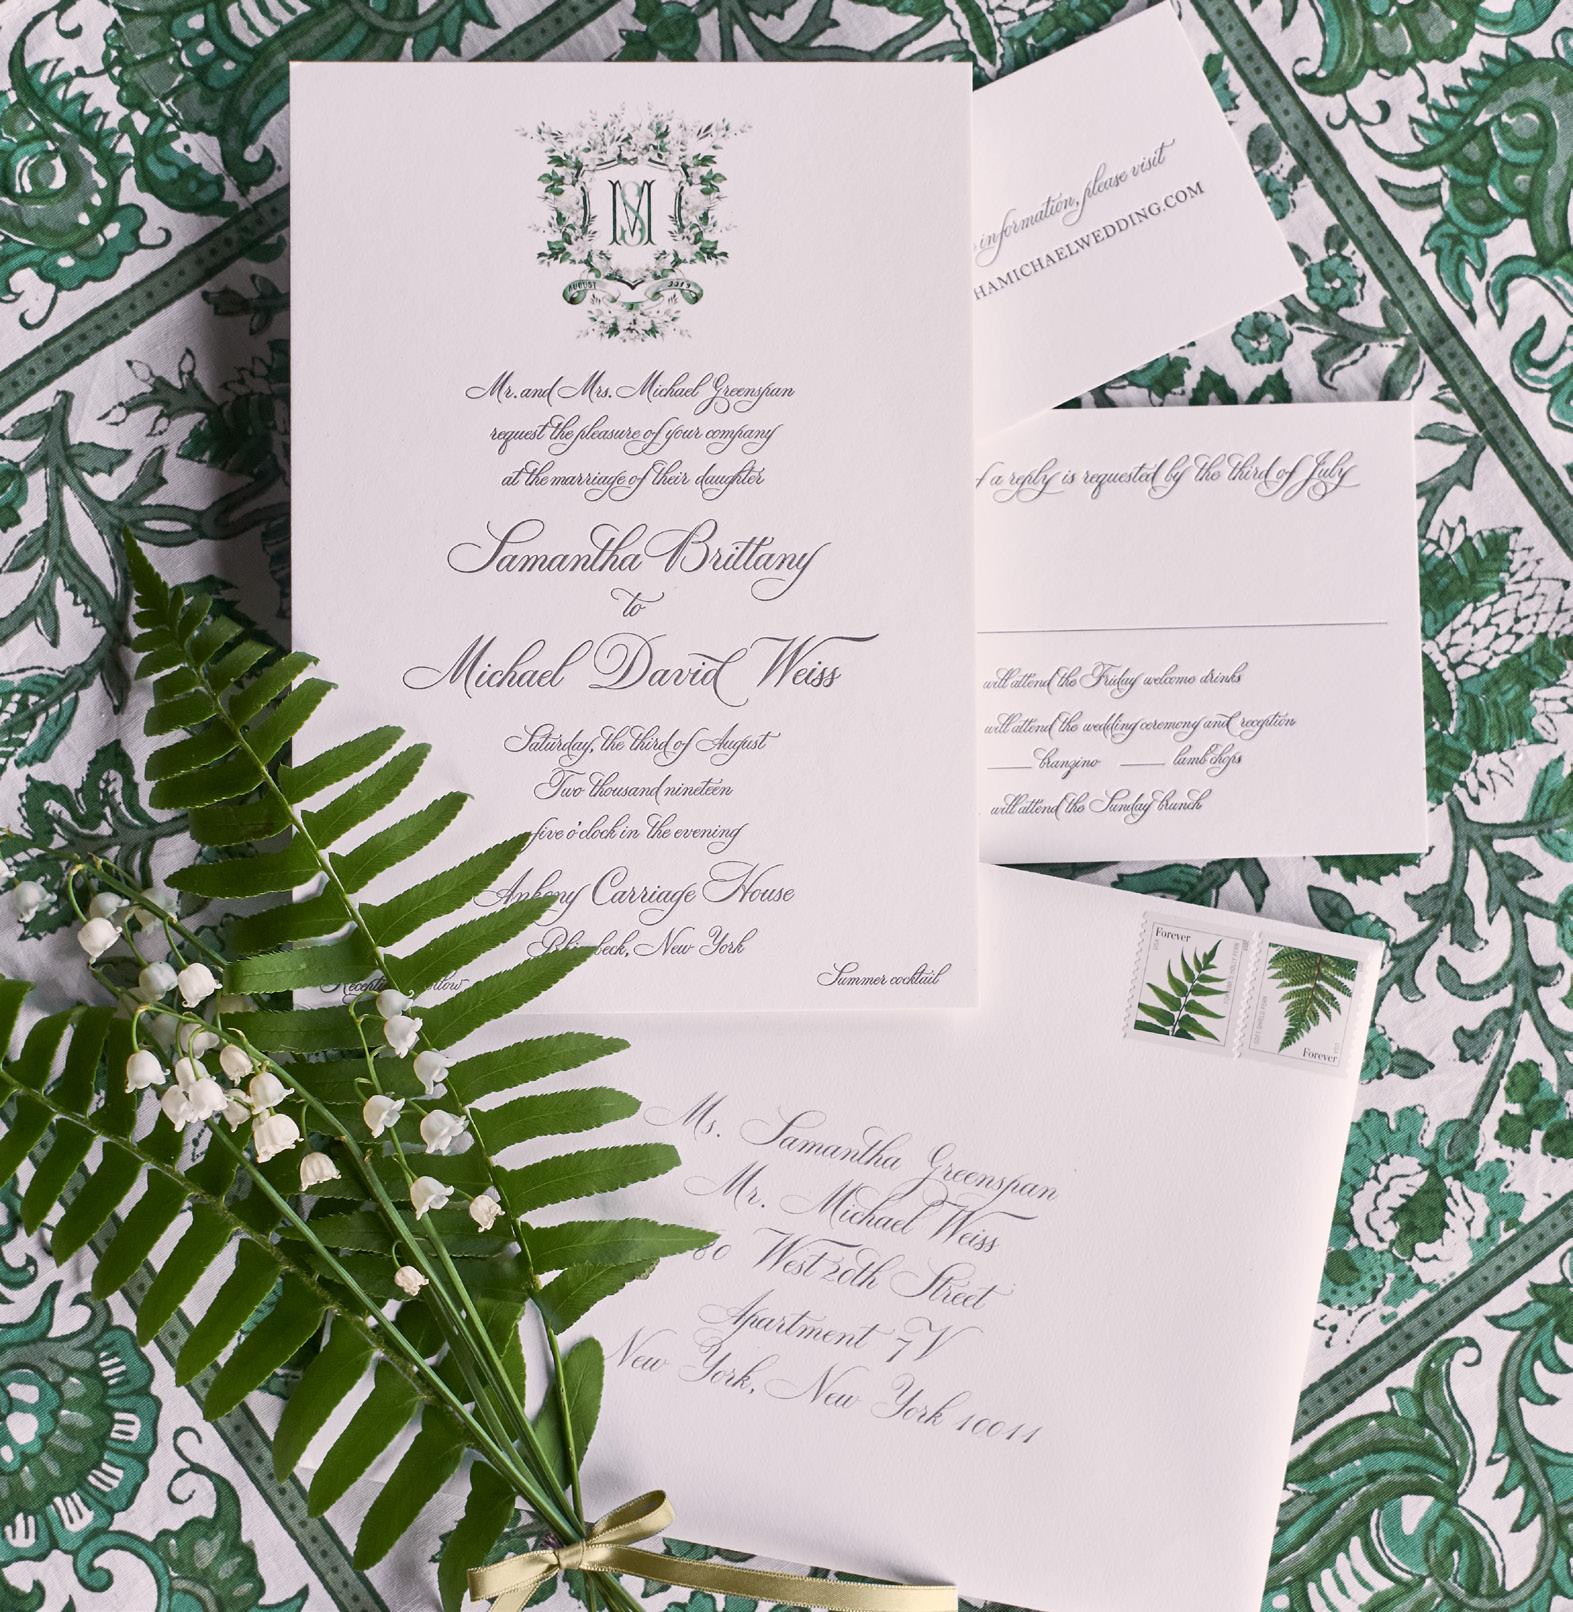 SM
AUGUST 2019
Mr. and Mrs. Michael Greenspan
request the pleasure of your company
at the marriage of their daughter
Samantha Brittany
to
Michael David Weiss
Saturday, the third of August
Two thousand nineteen
five o'clock in the evening
Ankony Carriage House
New York
Summer cocktail
information, please visit
HAMICHAELWEDDING.COM
a reply is requested by the third of July
will attend the Friday welcome drinks
will attend the wedding ceremony and reception
branzino lamb chops
will attend the Sunday brunch
Forever
USA
Forever
USA
Ms. Samantha Greenspan
Mr. Michael Weiss
80 West 20th Street
Apartment 7V
New York, New York 10011